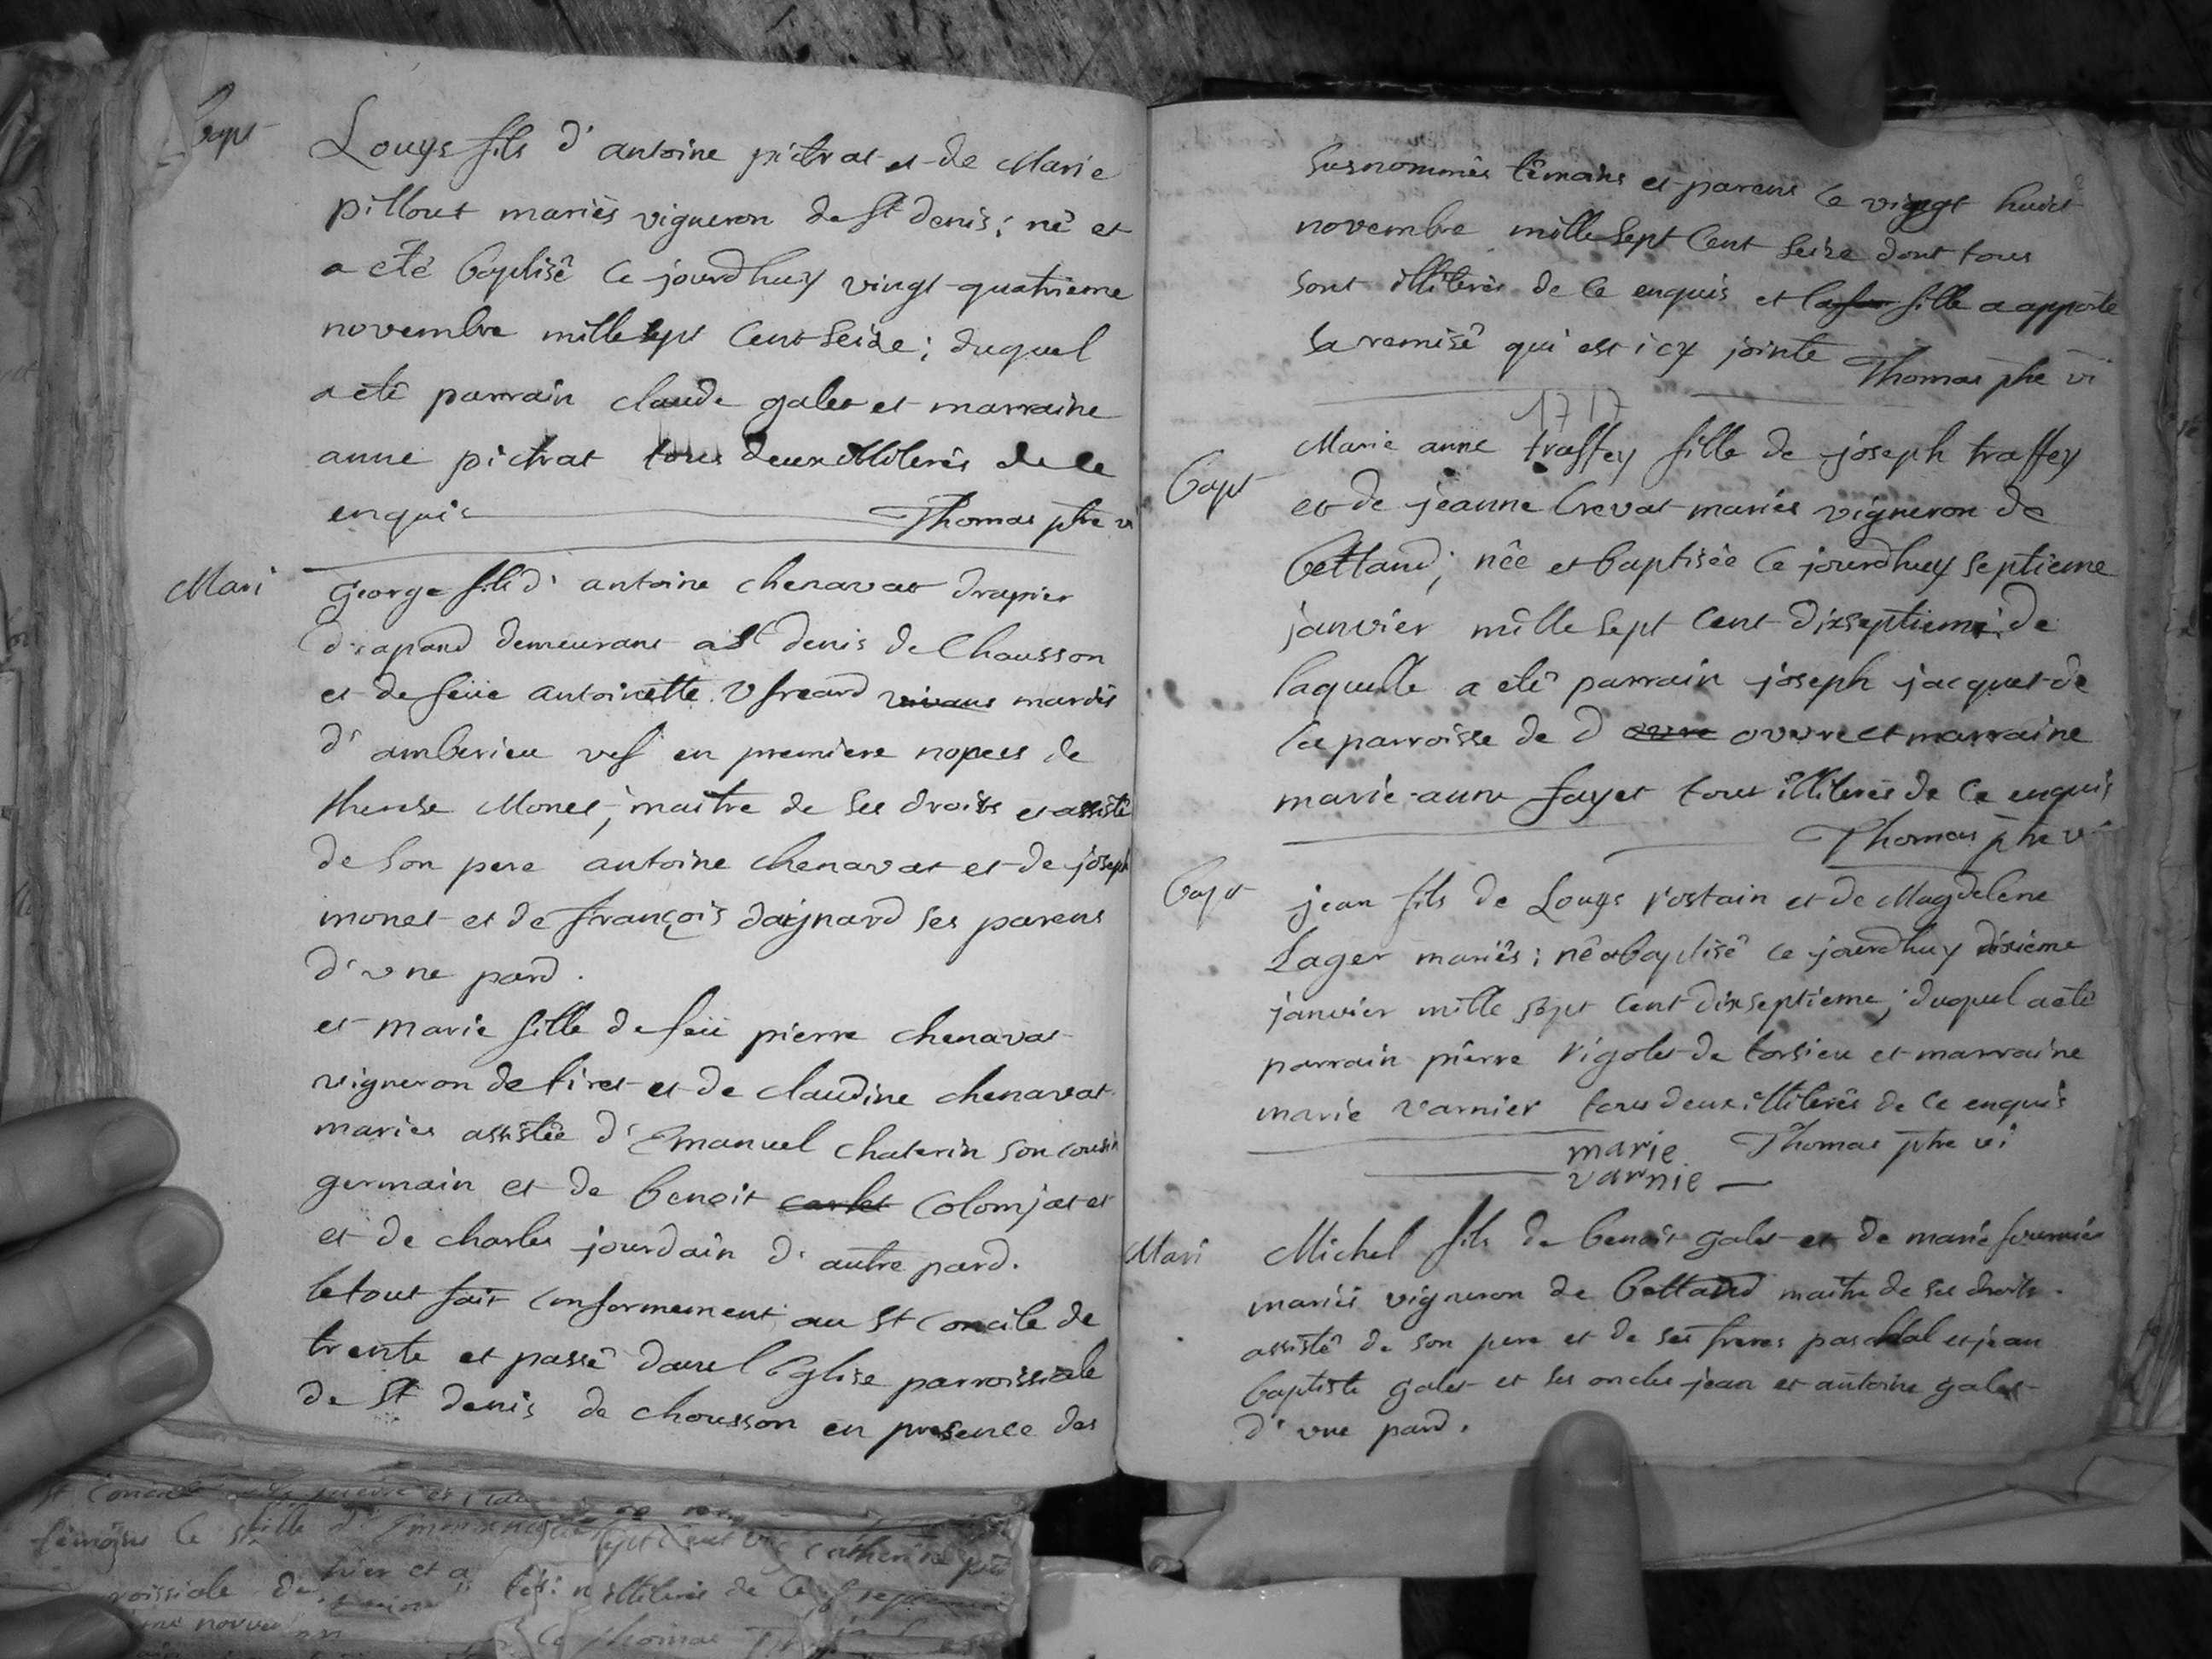 Bapt
Louys fils d' antoine pictrat et de Marie
pillout mariés vigneron de St denis; né et
a eté baptisé ce jourdhuy vingt-quatrieme
novembre mille sept cent seize; duquel
a eté parrain claude galet et marraine
anne pictrat tous deux illiterés de ce
enquis Thomas ptre vi
Mari
george fils d' antoine chenavat drapier
drapand demeurant a St denis de Chausson
et de feüe antoinette vivans mariés
d' amberieu vef en premiere nopces de
therese Monet; maitre de ses droits et assisté
de son pere antoine chenavat et de joseph
monet et de françois daignard ses parens
d' une pard.
et marie fille de feü pierre chenavat
vigneron de tiret et de claudine chenavat
maries assistée d' Emanuel chaterin son cousin
germain et de benoit colomjat et
et de charles jourdain d' autre pard.
le tout fait conformement au St concile de
trente et passé dans l Eglise parroissiale
de St denis de chousson en presence des
susnommés témoins et parens ce vingt huict
novembre mille sept cent seize dont tous
sont illiterés de ce enquis et fille a apporté
sa remise qui est icy jointe Thomas ptre vi
1717
Bapt
Marie anne traffey fille de joseph traffey
et de jeanne Crevat mariés vigneron de
bettand; née et baptisée ce jourdhuy septieme
janvier mille sept cent dixseptieme; de
laquelle a eté parrain joseph jacquet de
la parroisse de d ovvre et marraine
marie-anne fayet tous illiterés de ce enquis
Thomas ptre vi
Bapt
jean fils de Louys rostain et de Magdelene
Lager mariés; né a baptisé ce jourdhuy dixieme
janvier mille sept cent dixseptieme; duquel a eté
parrain pierre rigolet de torsieu et marraine
marie varnier tous deux illiterés de ce enquis
Thomas ptre vi
marie
varnie
Mari
Michel fils de benoit galet et de marie fournier
mariés vigneron de bettand maitre de ses droits
assisté de son pere et de ses freres paschal et jean
baptiste galet et ses oncles jean et antoine galet
d' une pard.